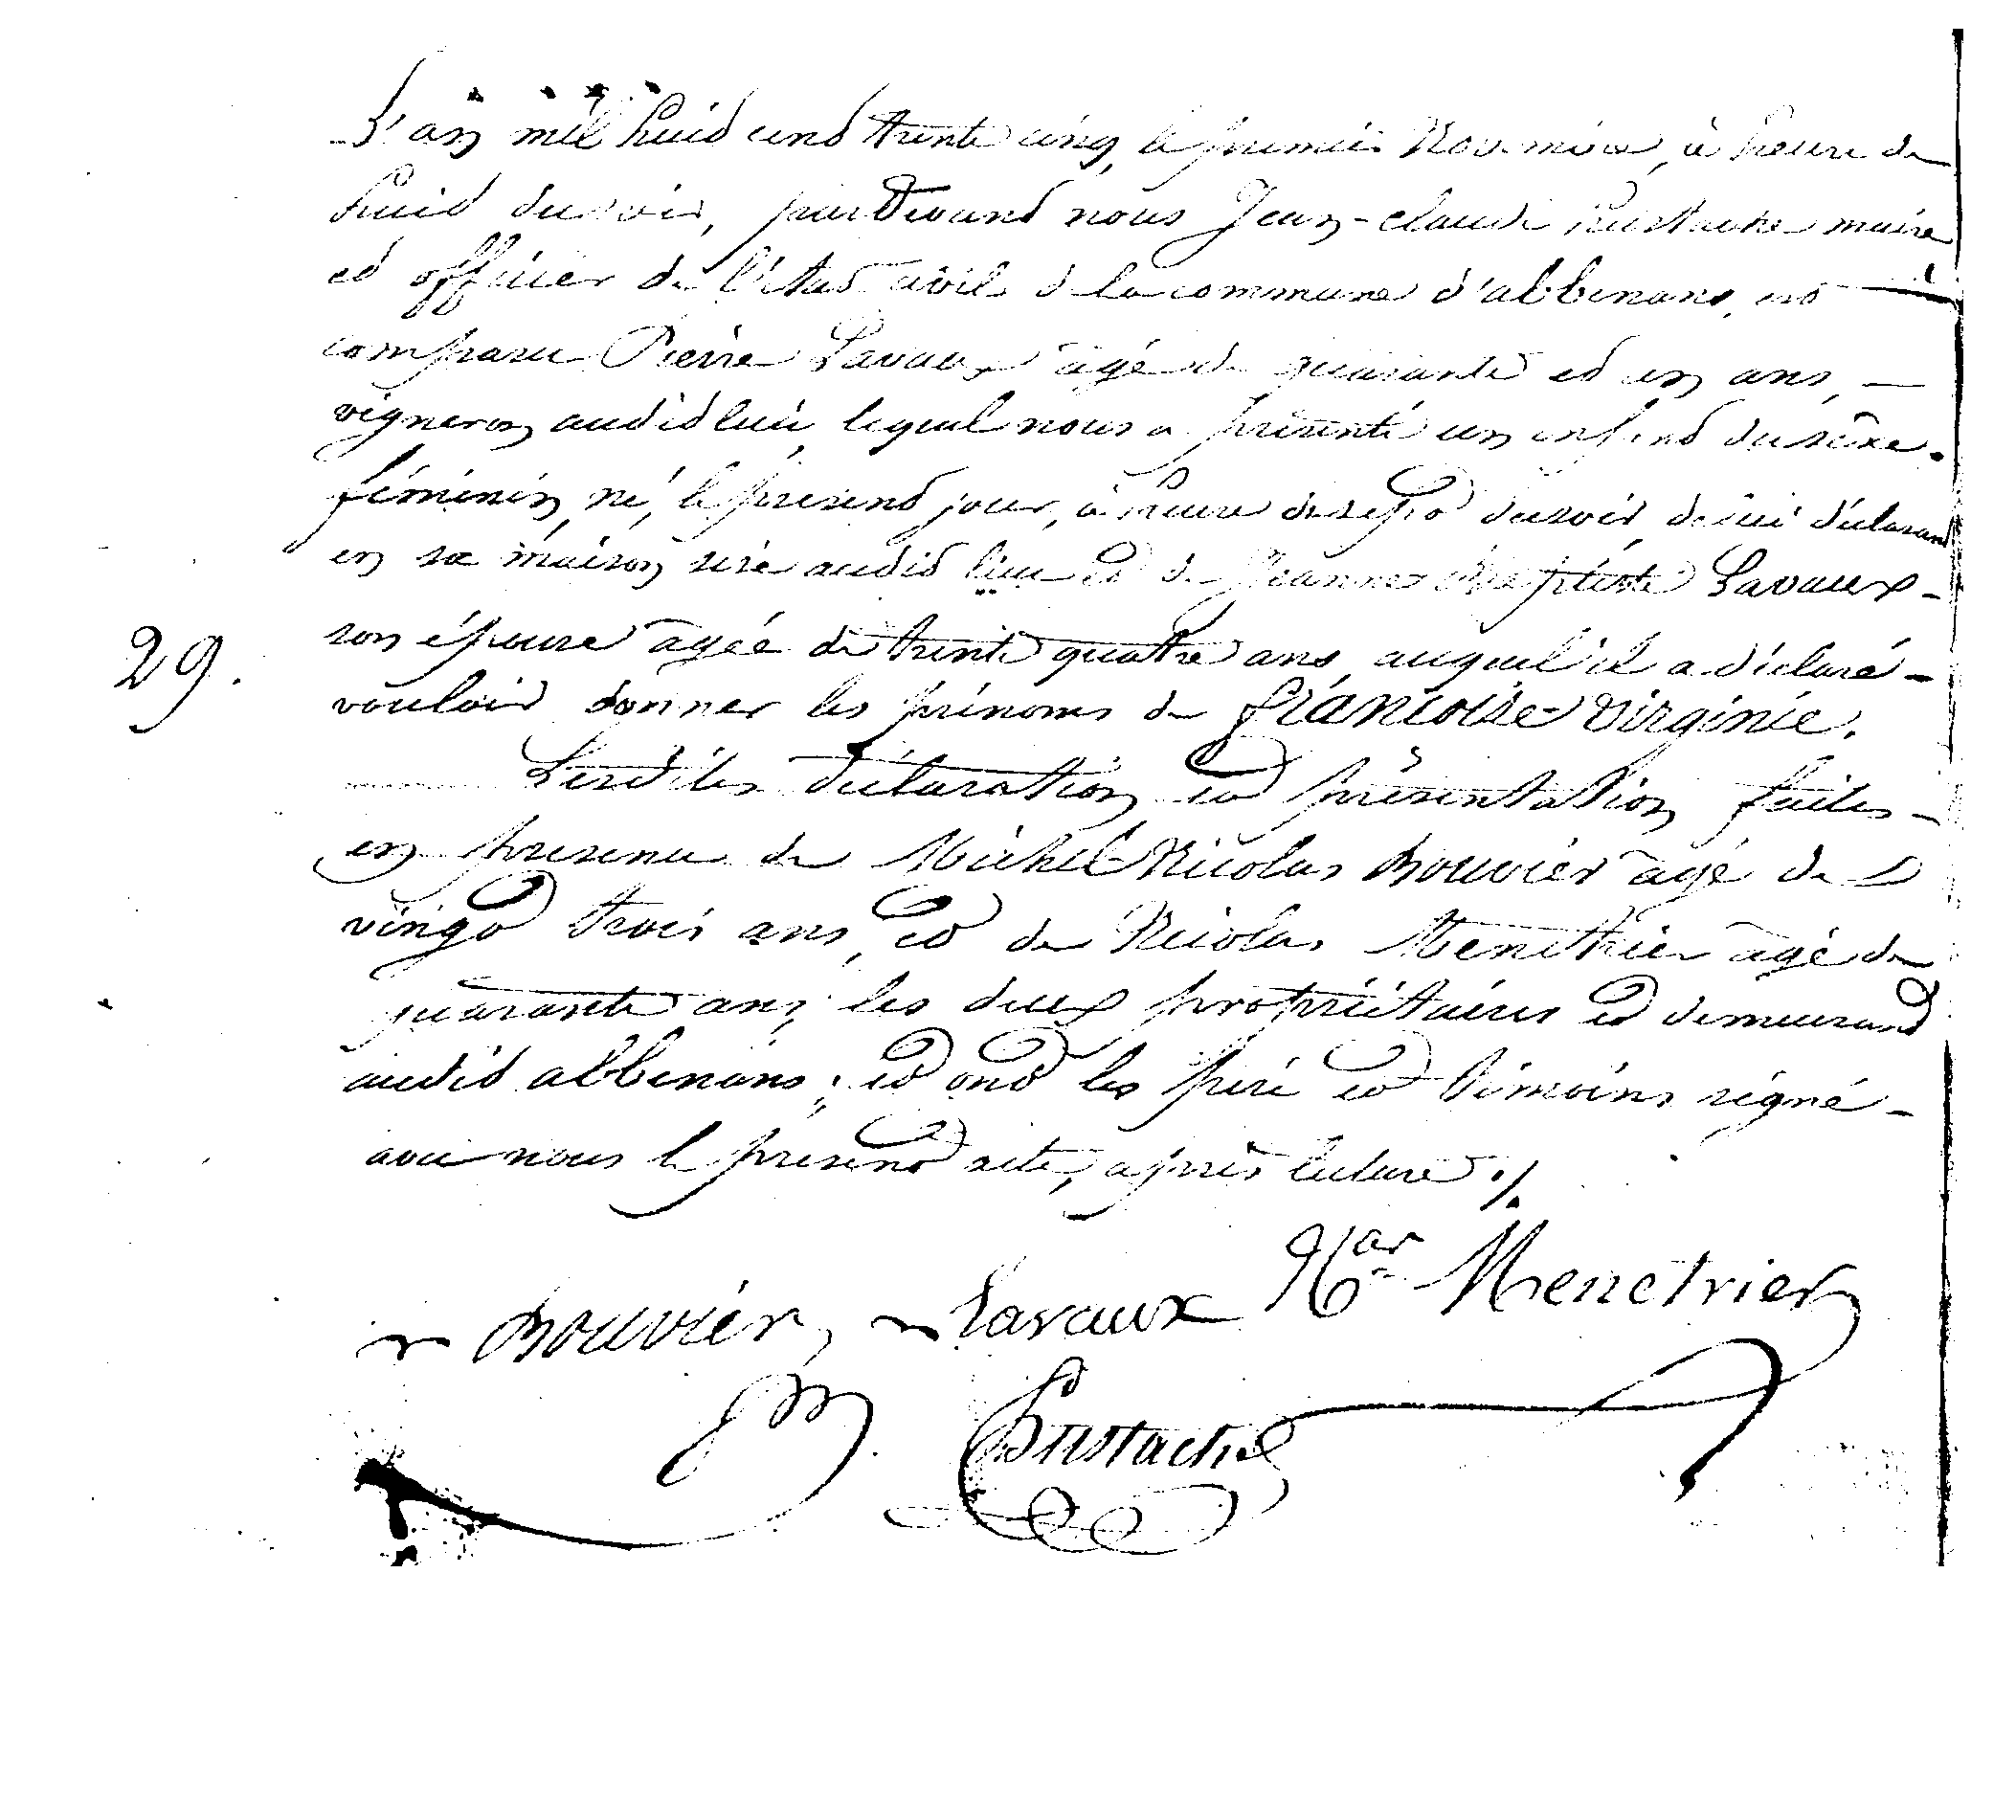 L'an mil huit cent trente cinq, le premier Novembre, à heure de
huit du soir, pardevant nous Jean-claude Eustache maire
et officier de l'état civil de la commune d'abbenans, est
comparu Pierre Lavaux âgé de quarante et un ans, —
vigneron audit lieu, lequel nous a présenté un enfant du sèxe
féminin, né, le présent jour, à heure de sept du soir, de lui déclarant
en sa maison sise audit lieu et de Jeanne Baptiste Lavaux -
29. son épouse agée de trente quatre ans, auquel il a déclaré -
vouloir donner les prénoms de françoise Virginie.
Lesdites déclaration et présentation faites -
en presence de Michel Nicolas Bouvier agé de
vingt trois ans, et de Nicolas Menethier agé de
quarante ans, les deux propriétaires et demeurant
audit abbenans; et ont les père et témoins signé -
avec nous le present acte, après lecture ./.
n Bouvier, Lavaux Nar Menetrier
Eustache